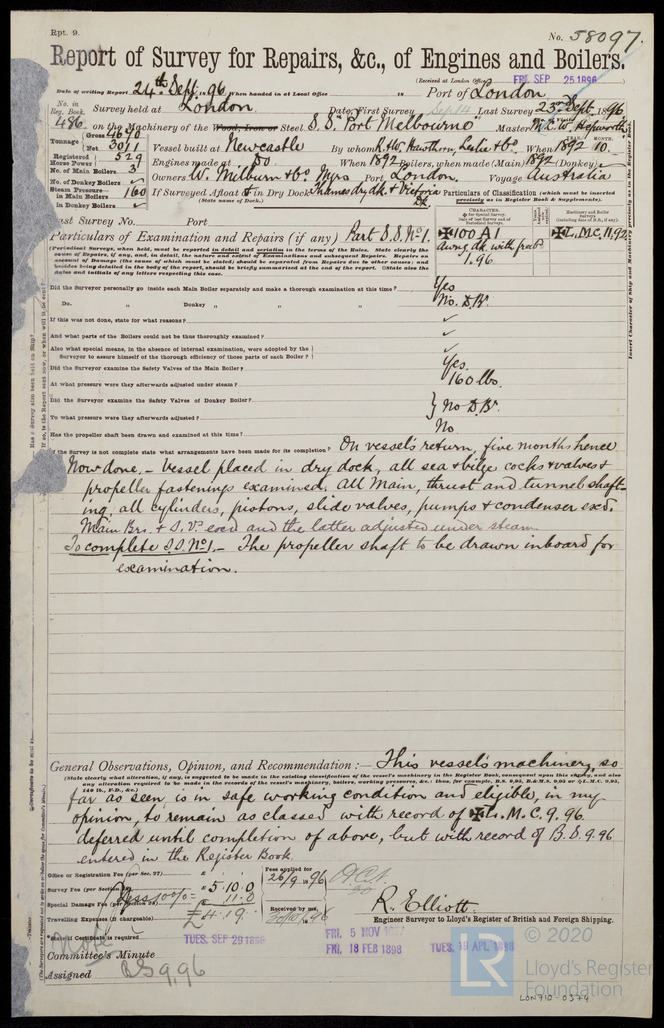 Rpt. 9.
No. 58097.
Report of Survey for Repairs, &c., of Engines and Boilers.
(Received at London Office FRI. SEP 25 1896)
Date of writing Report 24th Sept. 1896 When handed in at Local Office 18 Port of London
No. in Reg. Book. Survey held at London Date, First Survey Sep 14 Last Survey 23rd Sept. 1896
486 on the Machinery of the Wood, Iron or Steel S.S. "Port Melbourne" Master
Tonnage Gross 4670 Net 3011 Vessel built at Newcastle By whom R. & W. Hawthorn, Leslie & Co. When 1892 10.
Registered Horse Power 529 Engines made at Do When 1892 Boilers, when made (Main) 1892 (Donkey) ✓
No. of Main Boilers 3 Owners W. Milburn & Co. Port London. Voyage Australia
No. of Donkey Boilers ✓
Steam Pressure in Main Boilers 160 If Surveyed Afloat or in Dry Dock Thames dry dk & Victoria Dk.
(State name of Dock.)
in Donkey Boilers ✓
Particulars of Classification (which must be inserted precisely as in Register Book & Supplements).
Last Survey No. Port
Particulars of Examination and Repairs (if any) Part S.S. No 1.
CHARACTER.
✠100 A1
Awng dk. with
1.96
✠L.M.C. 11.92
Did the Surveyor personally go inside each Main Boiler separately and make a thorough examination at this time? Yes
Do. " Donkey " " " No. D.B.
If this was not done, state for what reasons? ✓
And what parts of the Boilers could not be thus thoroughly examined? ✓
Also what special means, in the absence of internal examination, were adopted by the
Surveyor to assure himself of the thorough efficiency of those parts of each Boiler? ✓
Did the Surveyor examine the Safety Valves of the Main Boiler? Yes.
At what pressure were they afterwards adjusted under steam? 160 lbs.
Did the Surveyor examine the Safety Valves of Donkey Boiler? } No D.B.
To what pressure were they afterwards adjusted?
Has the propeller shaft been drawn and examined at this time? No
If the Survey is not complete state what arrangements have been made for its completion? On vessel's return, five months hence
Now done. – Vessel placed in dry dock, all sea & bilge cocks & valves &
propeller fastenings examined. All Main, thrust and tunnel shaft-
ing, all cylinders, pistons, slide valves, pumps & condenser exd.
Main Brs. & S. Vs exd and the latter adjusted under steam.
To complete S.S. No 1. – The propeller shaft to be drawn inboard for
examination.
General Observations, Opinion, and Recommendation:— This vessel's machinery, so
(State clearly what alteration, if any, is suggested to be made in the existing classification of the vessel's machinery in the Register Book, consequent upon this enquiry, and also
far as seen, is in safe working condition and eligible, in my
opinion, to remain as classed with record of ✠L.M.C. 9.96
deferred until completion of above, but with record of B.S 9.96
entered in the Register Book.
Office or Registration Fee (per Sec. 27) £ : :
Survey Fee (per Section) £ 5.10.0
Less 10%
Special Damage Fee 11.0
£4.19.
Travelling Expenses (if chargeable)
Fees applied for 26/9 1896
Received by me,
R. Elliott.
Engineer Surveyor to Lloyd's Register of British and Foreign Shipping.
State if Certificate is required
TUES. SEP 29 1896
FRI. 5 NOV 1897
FRI. 18 FEB 1898
TUES. 19 APL 1898
Committee's Minute
Assigned BS 9,96
LR © 2020
Lloyd's Register
Foundation
LON710-0374